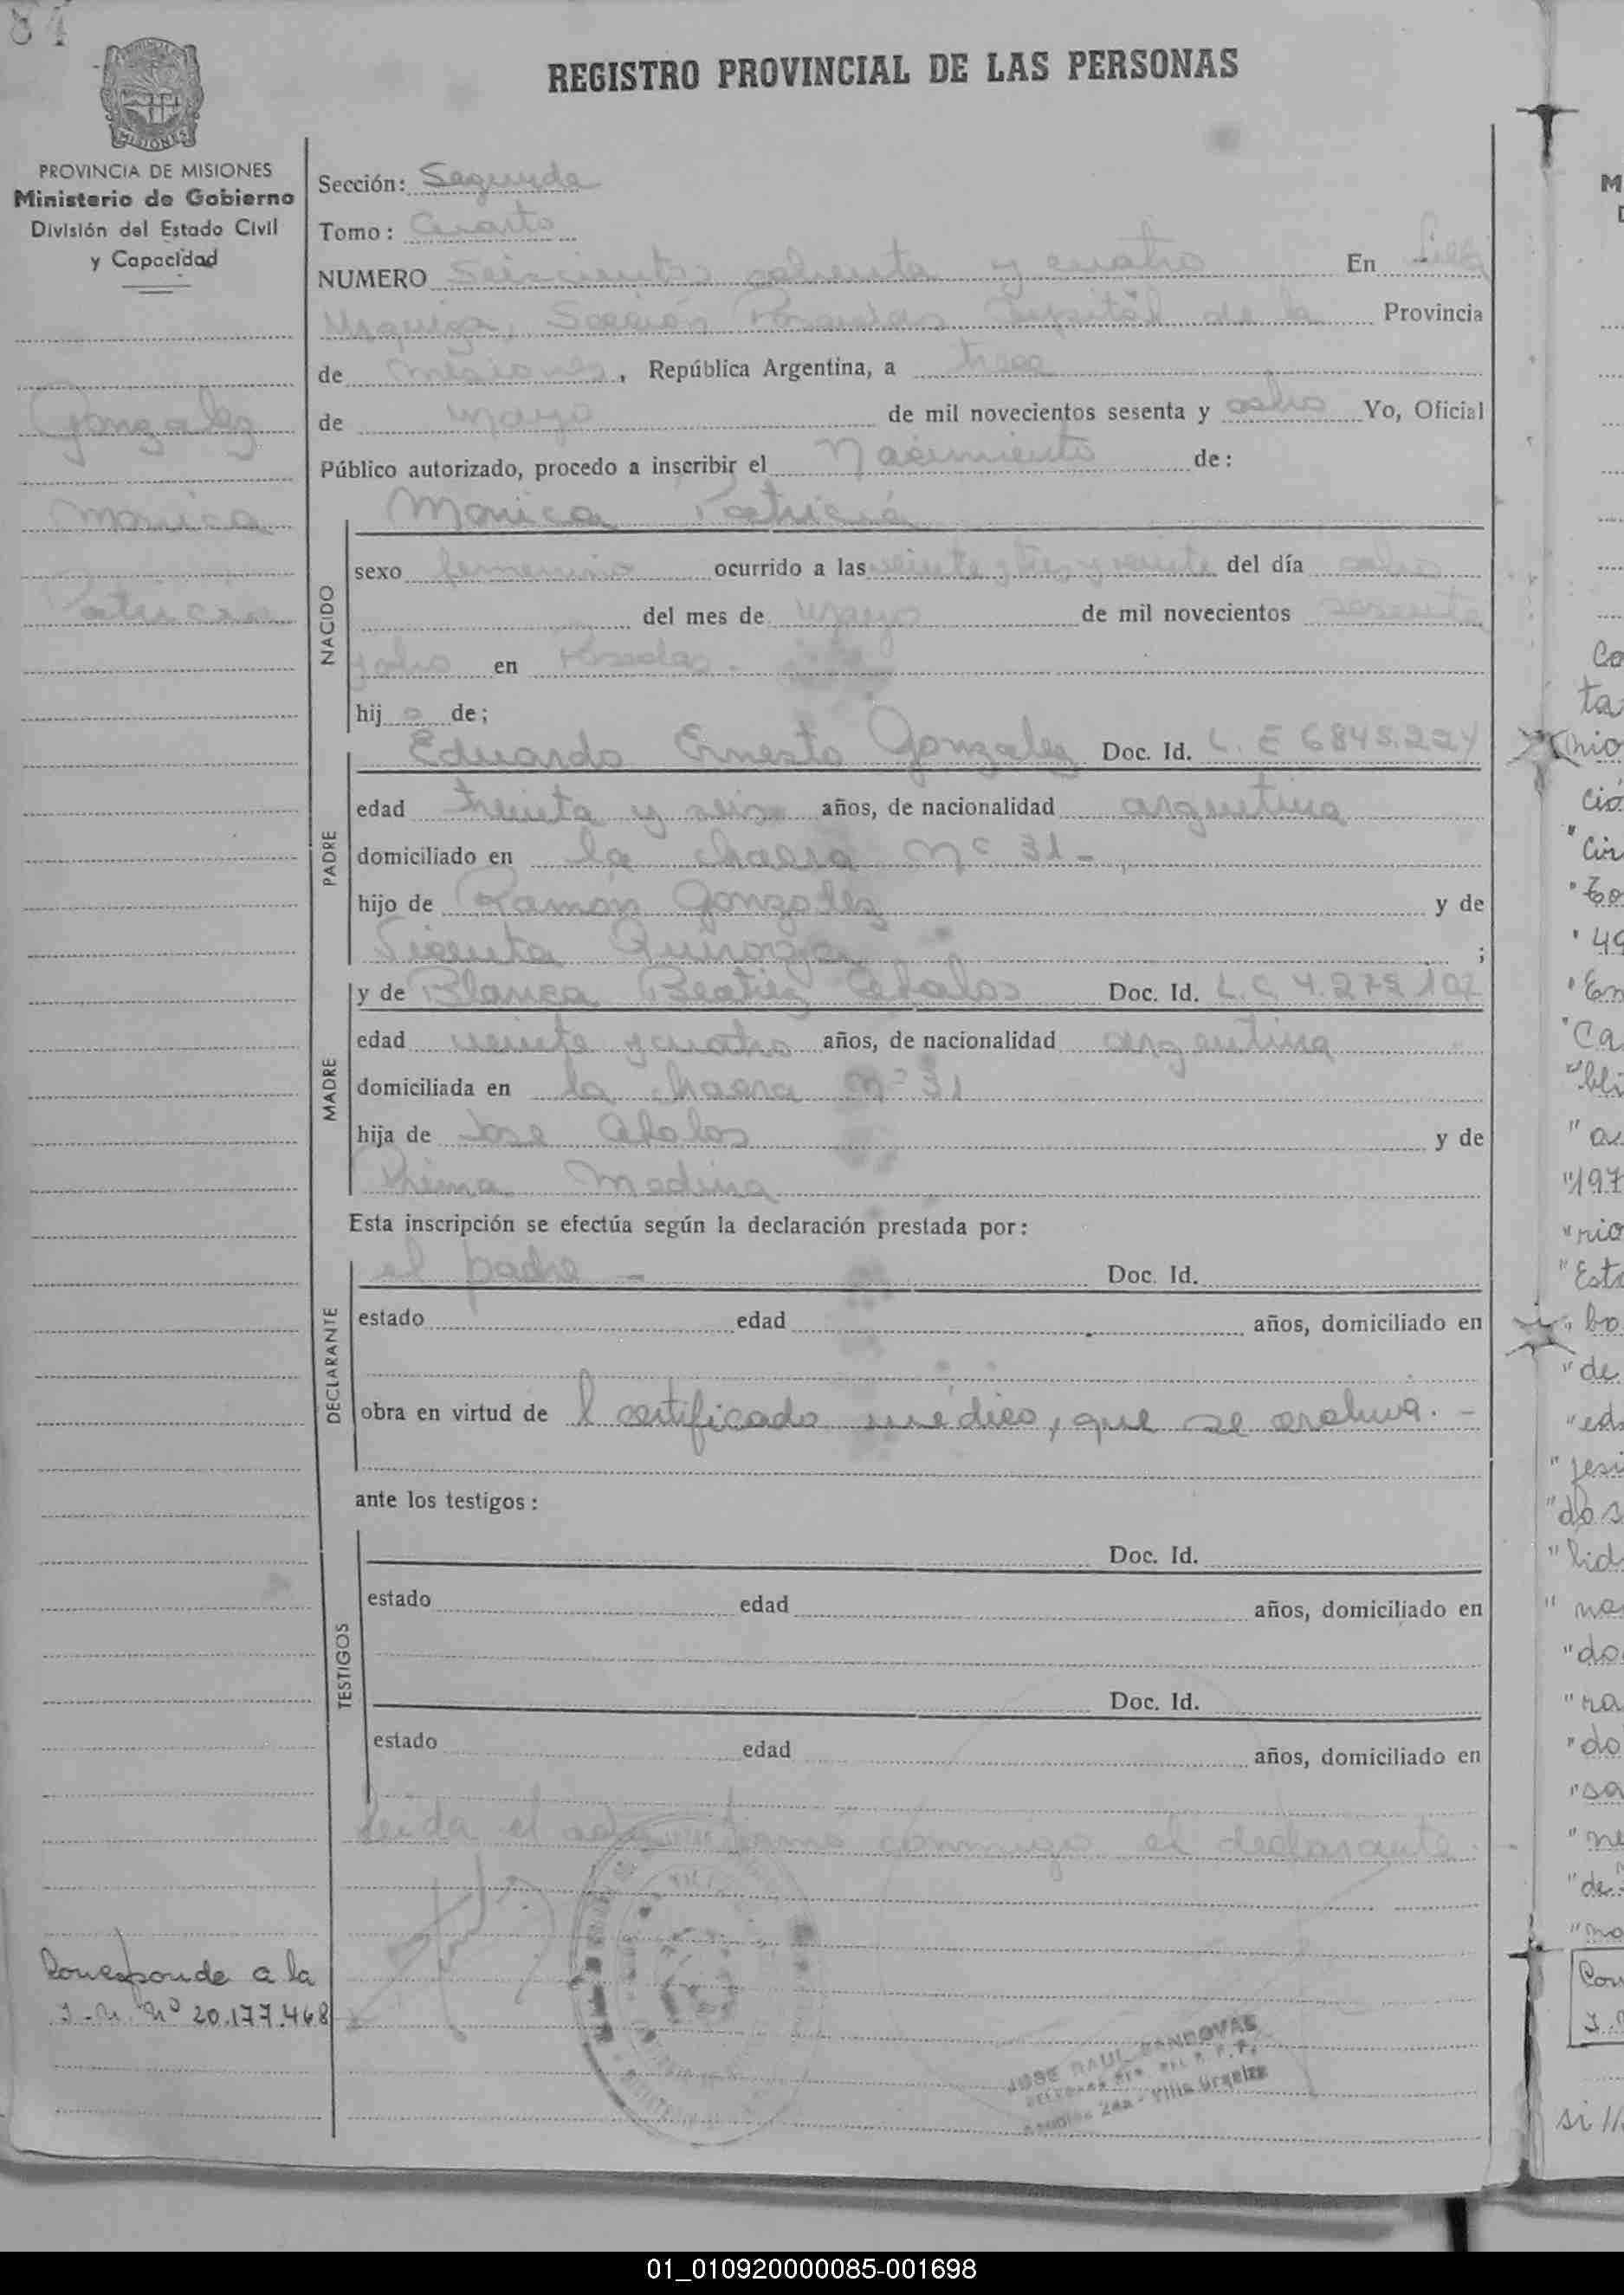 84
REGISTRO PROVINCIAL DE LAS PERSONAS
MISIONES
PROVINCIA DE MISIONES
Ministerio de Gobierno
División del Estado Civil
y Capacidad
Gonzalez
Monica
Patricia
Sección: Segunda
Tomo: Cuarto
NUMERO Seiscientos ochenta y cuatro En Villa
Urquiza, Sección Posadas Capital de la Provincia
de Misiones, República Argentina, a trece
de mayo de mil novecientos sesenta y ocho Yo, Oficial
Público autorizado, procedo a inscribir el Nacimiento de:
Monica Patricia
NACIDO
sexo femenino ocurrido a las veinte y tres y veinte del día ocho
del mes de mayo de mil novecientos sesenta
y ocho en Posadas.-
hij a de;
PADRE
Eduardo Ernesto Gonzalez Doc. Id. L. E 6845.224
edad treinta y seis años, de nacionalidad argentina
domiciliado en la chacra Nº 31 -
hijo de Ramón Gonzalez y de
Vicenta Quiroga ;
MADRE
y de Blanca Beatriz Doc. Id. L.C. 4.272.102
edad veinte y cuatro años, de nacionalidad argentina
domiciliada en la chacra Nº 31
hija de Jose y de
Prima Medina
Esta inscripción se efectúa según la declaración prestada por:
DECLARANTE
el padre - Doc. Id.
estado edad años, domiciliado en
obra en virtud de l certificado médico, que se archiva. -
ante los testigos:
TESTIGOS
Doc. Id.
estado edad años, domiciliado en
Doc. Id.
estado edad años, domiciliado en
Leida el acta firmó conmigo el declarante.
Corresponde a la
I.N. Nº 20.177.468
JOSE RAUL SANDOVAL
Sección 2da - Villa Urquiza
01_010920000085-001698